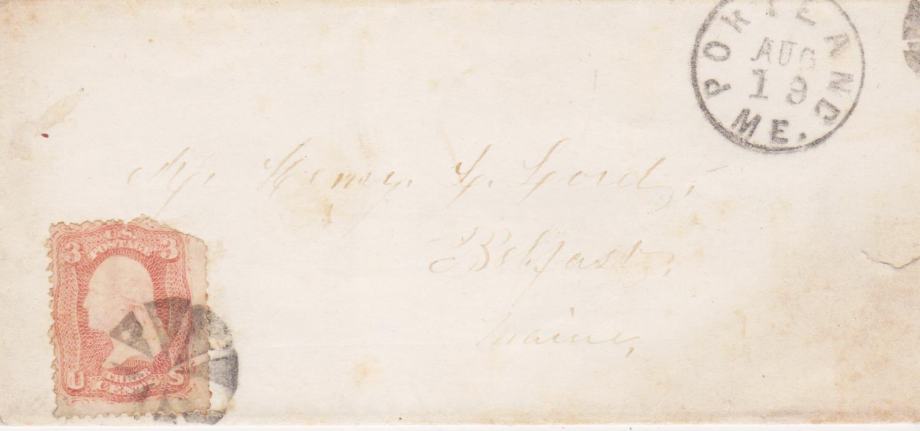 PORTLAND
AUG
19
ME.
Mr. Henry. L. Lord,
Belfast,
Maine,
U.S.
POSTAGE
3 3
U S
THREE
CENTS